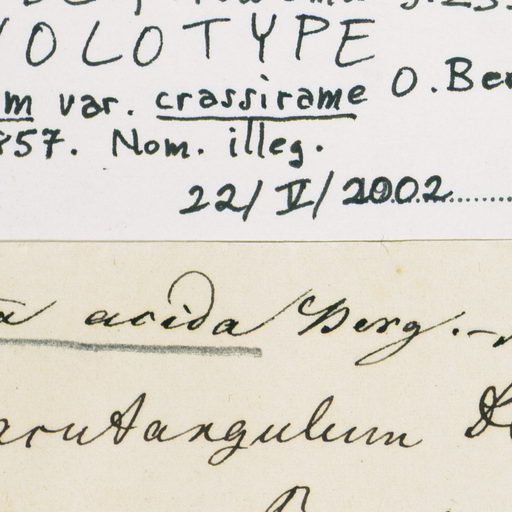 OLOTYPE
m var. crassirame O. Be
857. Nom. illeg.
22/V/2002
a acida Berg.
acutangulum